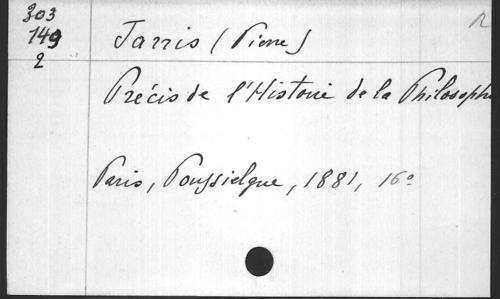 303
149
2
Jarris (Pierre)
Précis de l'Histoire de la Philosophi
Paris, Poussielgue, 1881, 16°